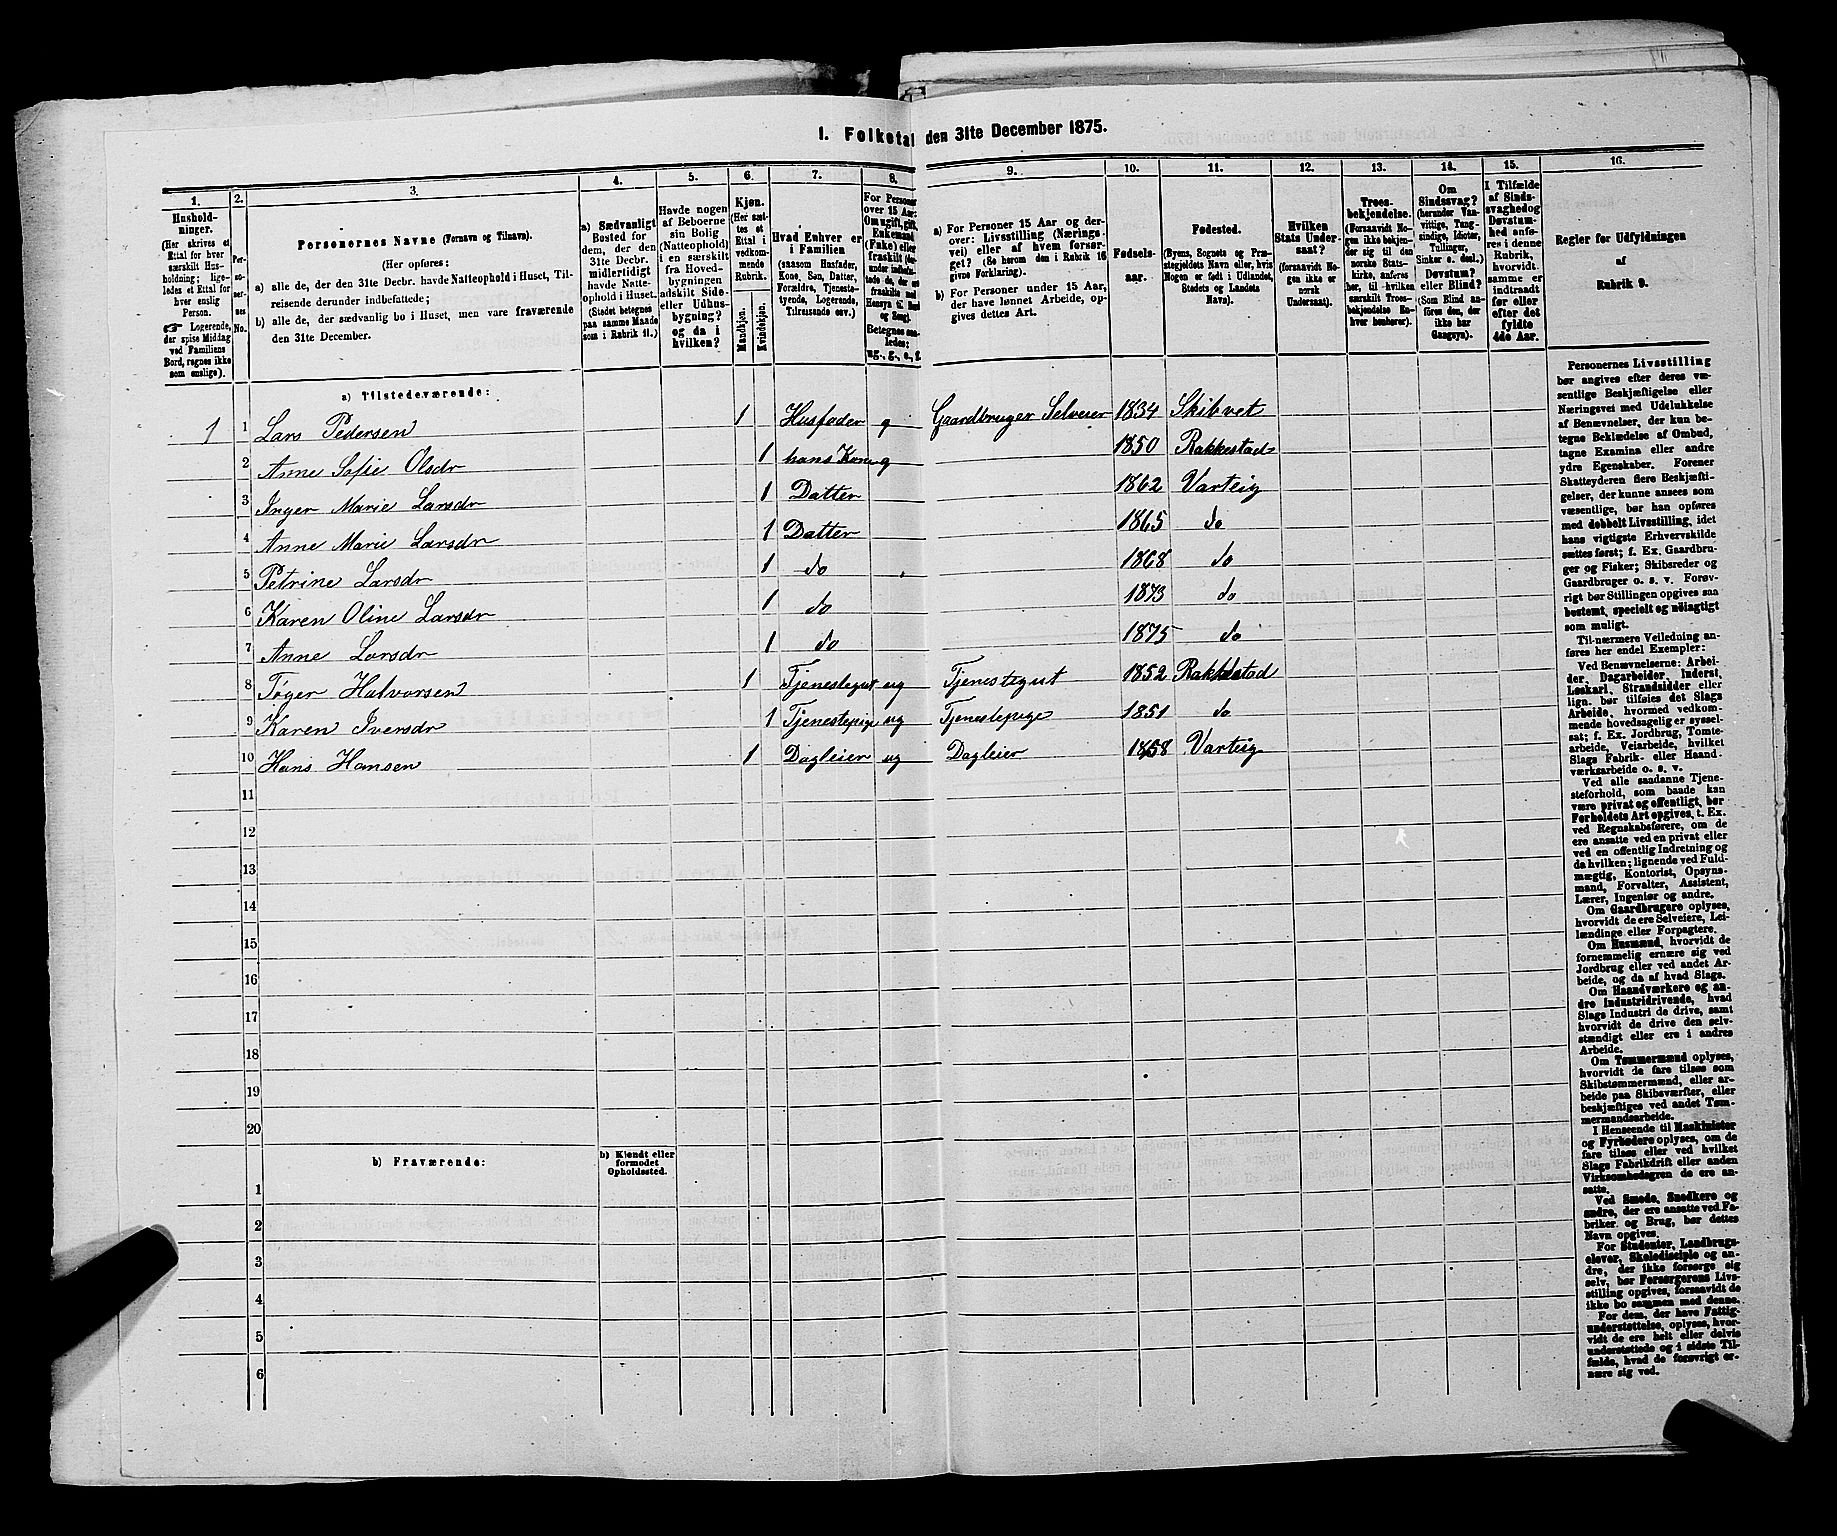 I. Folketal den 31te December 1875.
1. 2. 3. 4. 5. 6. 7. 8. 9. 10. 11. 12. 13. 14. 15. 16.
Hushold-
ninger.
(Her skrives et
Ettal for hver
særskilt Hus-
holdning; lige-
ledes et Ettal for
hver enslig
Person.
☞ Logerende,
der spise Middag
ved Familiens
Bord, regnes ikke
som enslige).
Per-
so-
ner-
nes
No.
Personernes Navne (Fornavn og Tilnavn).
(Her opføres:
a) alle de, der den 31te Decbr. havde Natteophold i Huset, Til-
reisende derunder indbefattede;
b) alle de, der sædvanlig bo i Huset, men vare fraværende
den 31te December.
a) Sædvanligt
Bosted for
dem, der den
31te Decbr.
midlertidigt
havde Natte-
ophold i Huset.
(Stedet betegnes
paa samme Maade
som i Rubrik 11.)
Havde nogen
af Beboerne
sin Bolig
(Natteophold)
i en særskilt
fra Hoved-
bygningen
adskilt Side-
eller Udhus-
bygning?
og da i
hvilken?
Kjøn.
(Her sæt-
tes et
Ettal i
vedkom-
mende
Rubrik.
Mandkjøn.
Kvindekjøn.
Hvad Enhver er
i Familien
(saasom Husfader,
Kone, Søn, Datter,
Forældre, Tjeneste-
tyende, Logerende,
Tilreisende osv.)
For Personer
over 15 Aar:
Om ugift, gift,
Enkemand
(Enke) eller
fraskilt
Betegnes saa-
ledes:
ug., g., e., f.
a) For Personer 15 Aar og der-
over: Livsstilling (Nærings-
vei) eller af hvem forsør-
get? (Se herom den i Rubrik 16
givne Forklaring).
b) For Personer under 15 Aar,
der have lønnet Arbeide, op-
gives dettes Art.
Fødsels-
aar.
Fødested.
(Byens, Sognets og Præ-
stegjeldets Navn eller, hvis
Nogen er født i Udlandet,
Stedets og Landets
Navn).
Hvilken
Stats Under-
saat?
(forsaavidt No-
gen ikke er
norsk
Undersaat).
Troes-
bekjendelse.
(Forsaavidt No-
gen ikke bekjen-
der sig til den
norske Stats-
kirke, anføres
her, til hvilken
særskilt Troes-
bekjendelse En-
hver henhører).
Om
Sindssvag?
(herunder Van-
vittige, Tung-
sindige, Idioter,
Tullinger,
Sinker o. desl.)
Døvstum?
eller Blind?
(Som Blind an-
føres den, der
ikke har
Gangsyn).
I Tilfælde
af Sinds-
svaghed og
Døvstum-
hed anfø-
res i denne
Rubrik,
hvorvidt
samme er
indtraadt
før eller
efter det
fyldte
4de Aar.
Regler for Udfyldningen
af
Rubrik 9.
a) Tilstedeværende:
1 1 Lars Pedersen 1 Husfader g Gaardbruger Selveier 1834 Skibvet
2 Anne Sofie Olsdr 1 hans Kone g 1850 Rakkestad
3 Inger Marie Larsdr 1 Datter 1862 Varteig
4 Anne Marie Larsdr 1 Datter 1865 do
5 Petrine Larsdr 1 do 1868 do
6 Karen Oline Larsdr 1 do 1873 do
7 Anne Larsdr 1 do 1875 do
8 Tøger Halvorsen 1 Tjenestegut ug Tjenestegut 1852 Rakkestad
9 Karen Iversdr 1 Tjenestepige ug Tjenestepige 1851 do
10 Hans Hansen 1 Dagleier ug Dagleier 1858 Varteig
11
12
13
14
15
16
17
18
19
20
b) Fraværende:
b) Kjendt eller
formodet
Opholdssted.
1
2
3
4
5
6
Personernes Livsstilling
bør angives efter deres væ-
sentlige Beskjæftigelse eller
Næringsvei med Udelukkelse
af Benævnelser, der kun be-
tegne Beklædelse af Ombud,
tagne Examina eller andre
ydre Egenskaber. Forener
Skatteyderen flere Beskjæfti-
gelser, der kunne ansees som
væsentlige, bør han opføres
med dobbelt Livsstilling, idet
hans vigtigste Erhvervskilde
sættes først; f. Ex. Gaardbru-
ger og Fisker; Skibsreder og
Gaardbruger o. s. v. Forøv-
rigt bør Stillingen opgives saa
bestemt, specielt og nøiagtigt
som muligt.
Til nærmere Veiledning an-
føres her endel Exempler:
Ved Benævnelserne: Arbei-
der, Dagarbeider, Inderst,
Løskarl, Strandsidder eller
lign. bør tilføies det Slags
Arbeide, hvormed vedkom-
mende hovedsagelig er syssel-
sat; f. Ex. Jordbrug, Tomte-
arbeide, Veiarbeide, hvilket
Slags Fabrik- eller Haand-
værksarbeide o. s. v.
Ved alle saadanne Tjene-
steforhold, som baade kan
være privat og offentligt, bør
Forholdets Art opgives, f. Ex.
ved Regnskabsførere, om de
ere ansatte ved en privat eller
ved en offentlig Indretning og
da hvilken; lignende ved Fuld-
mægtig, Kontorist, Opsyns-
mand, Forvalter, Assistent,
Lærer, Ingeniør og andre.
Om Gaardbrugere oplyses,
hvorvidt de ere Selveiere, Lei-
lændinge eller Forpagtere.
Om Husmænd, hvorvidt de
fornemmelig ernære sig ved
Jordbrug eller ved andet Ar-
beide, og da af hvad Slags.
Om Haandværkere og an-
dre Industridrivende, hvad
Slags Industri de drive, samt
hvorvidt de drive den selv-
stændigt eller ere i andres
Arbeide.
Om Tømmermænd oplyses,
hvorvidt de fare tilsøs som
Skibstømmermænd, eller ar-
beide paa Skibsværfter, eller
beskjæftiges ved andet Tøm-
mermandsarbeide.
I Henseende til Maskinister
og Fyrbødere oplyses, om de
fare tilsøs eller ved hvilket
Slags Fabrikdrift eller anden
Virksomhedsgren de ere an-
satte.
Ved Smede, Snedkere og
andre, der ere ansatte ved Fa-
briker og Brug, bør dettes
Navn opgives.
For Studenter, Landbrugs-
elever, Skoledisciple og an-
dre, der ikke forsørge sig
selv, bør Forsørgerens Livs-
stilling opgives, forsaavidt de
ikke bo sammen med denne.
For dem, der have Fattig-
understøttelse, oplyses, hvor-
vidt de ere helt eller delvis
understøttede og i sidste Til-
fælde, hvad de forøvrigt er-
nære sig ved.